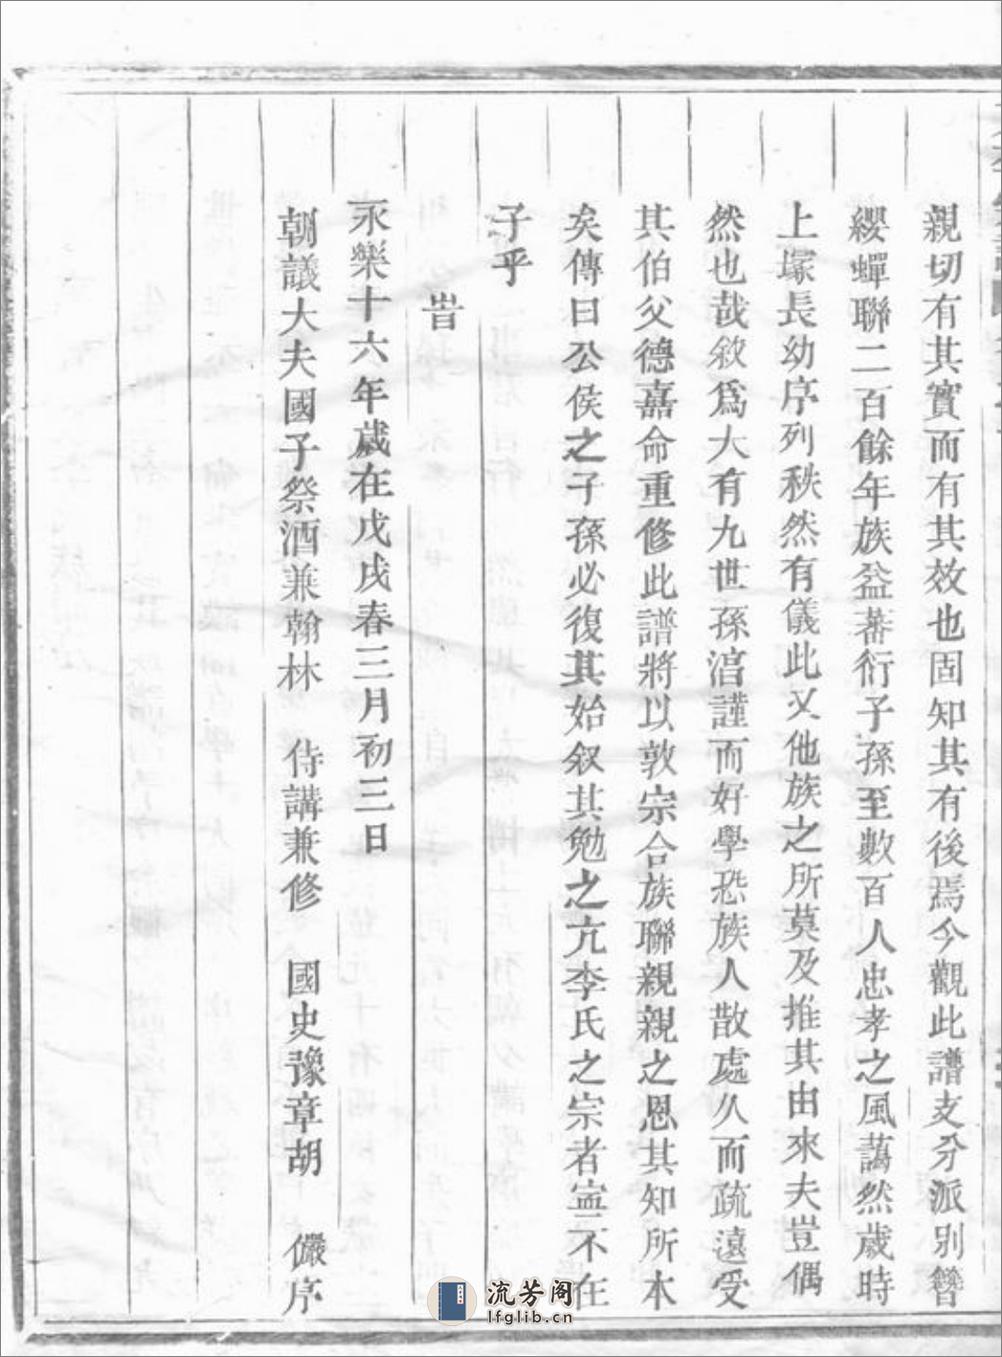 親切有其實而有其效也固知其有後焉今觀此譜支分派別簪
纓蟬聯二百餘年族益蕃衍子孫至數百人忠孝之風藹然歲時
上塚長幼序列秩然有儀此又他族之所莫及推其由來夫豈偶
然也哉敘爲大有九世孫涫謹而好學恐族人散處久而疏遠受
其伯父德嘉命重修此譜將以敦宗合族聯親親之恩其知所本
矣傳曰公侯之子孫必復其始叙其勉之亢李氏之宗者寍不在
子乎
旹
永樂十六年歲在戊戌春三月初三日
朝議大夫國子祭酒兼翰林 侍講兼修 國史豫章胡 儼序
流芳阁
lfglib.cn